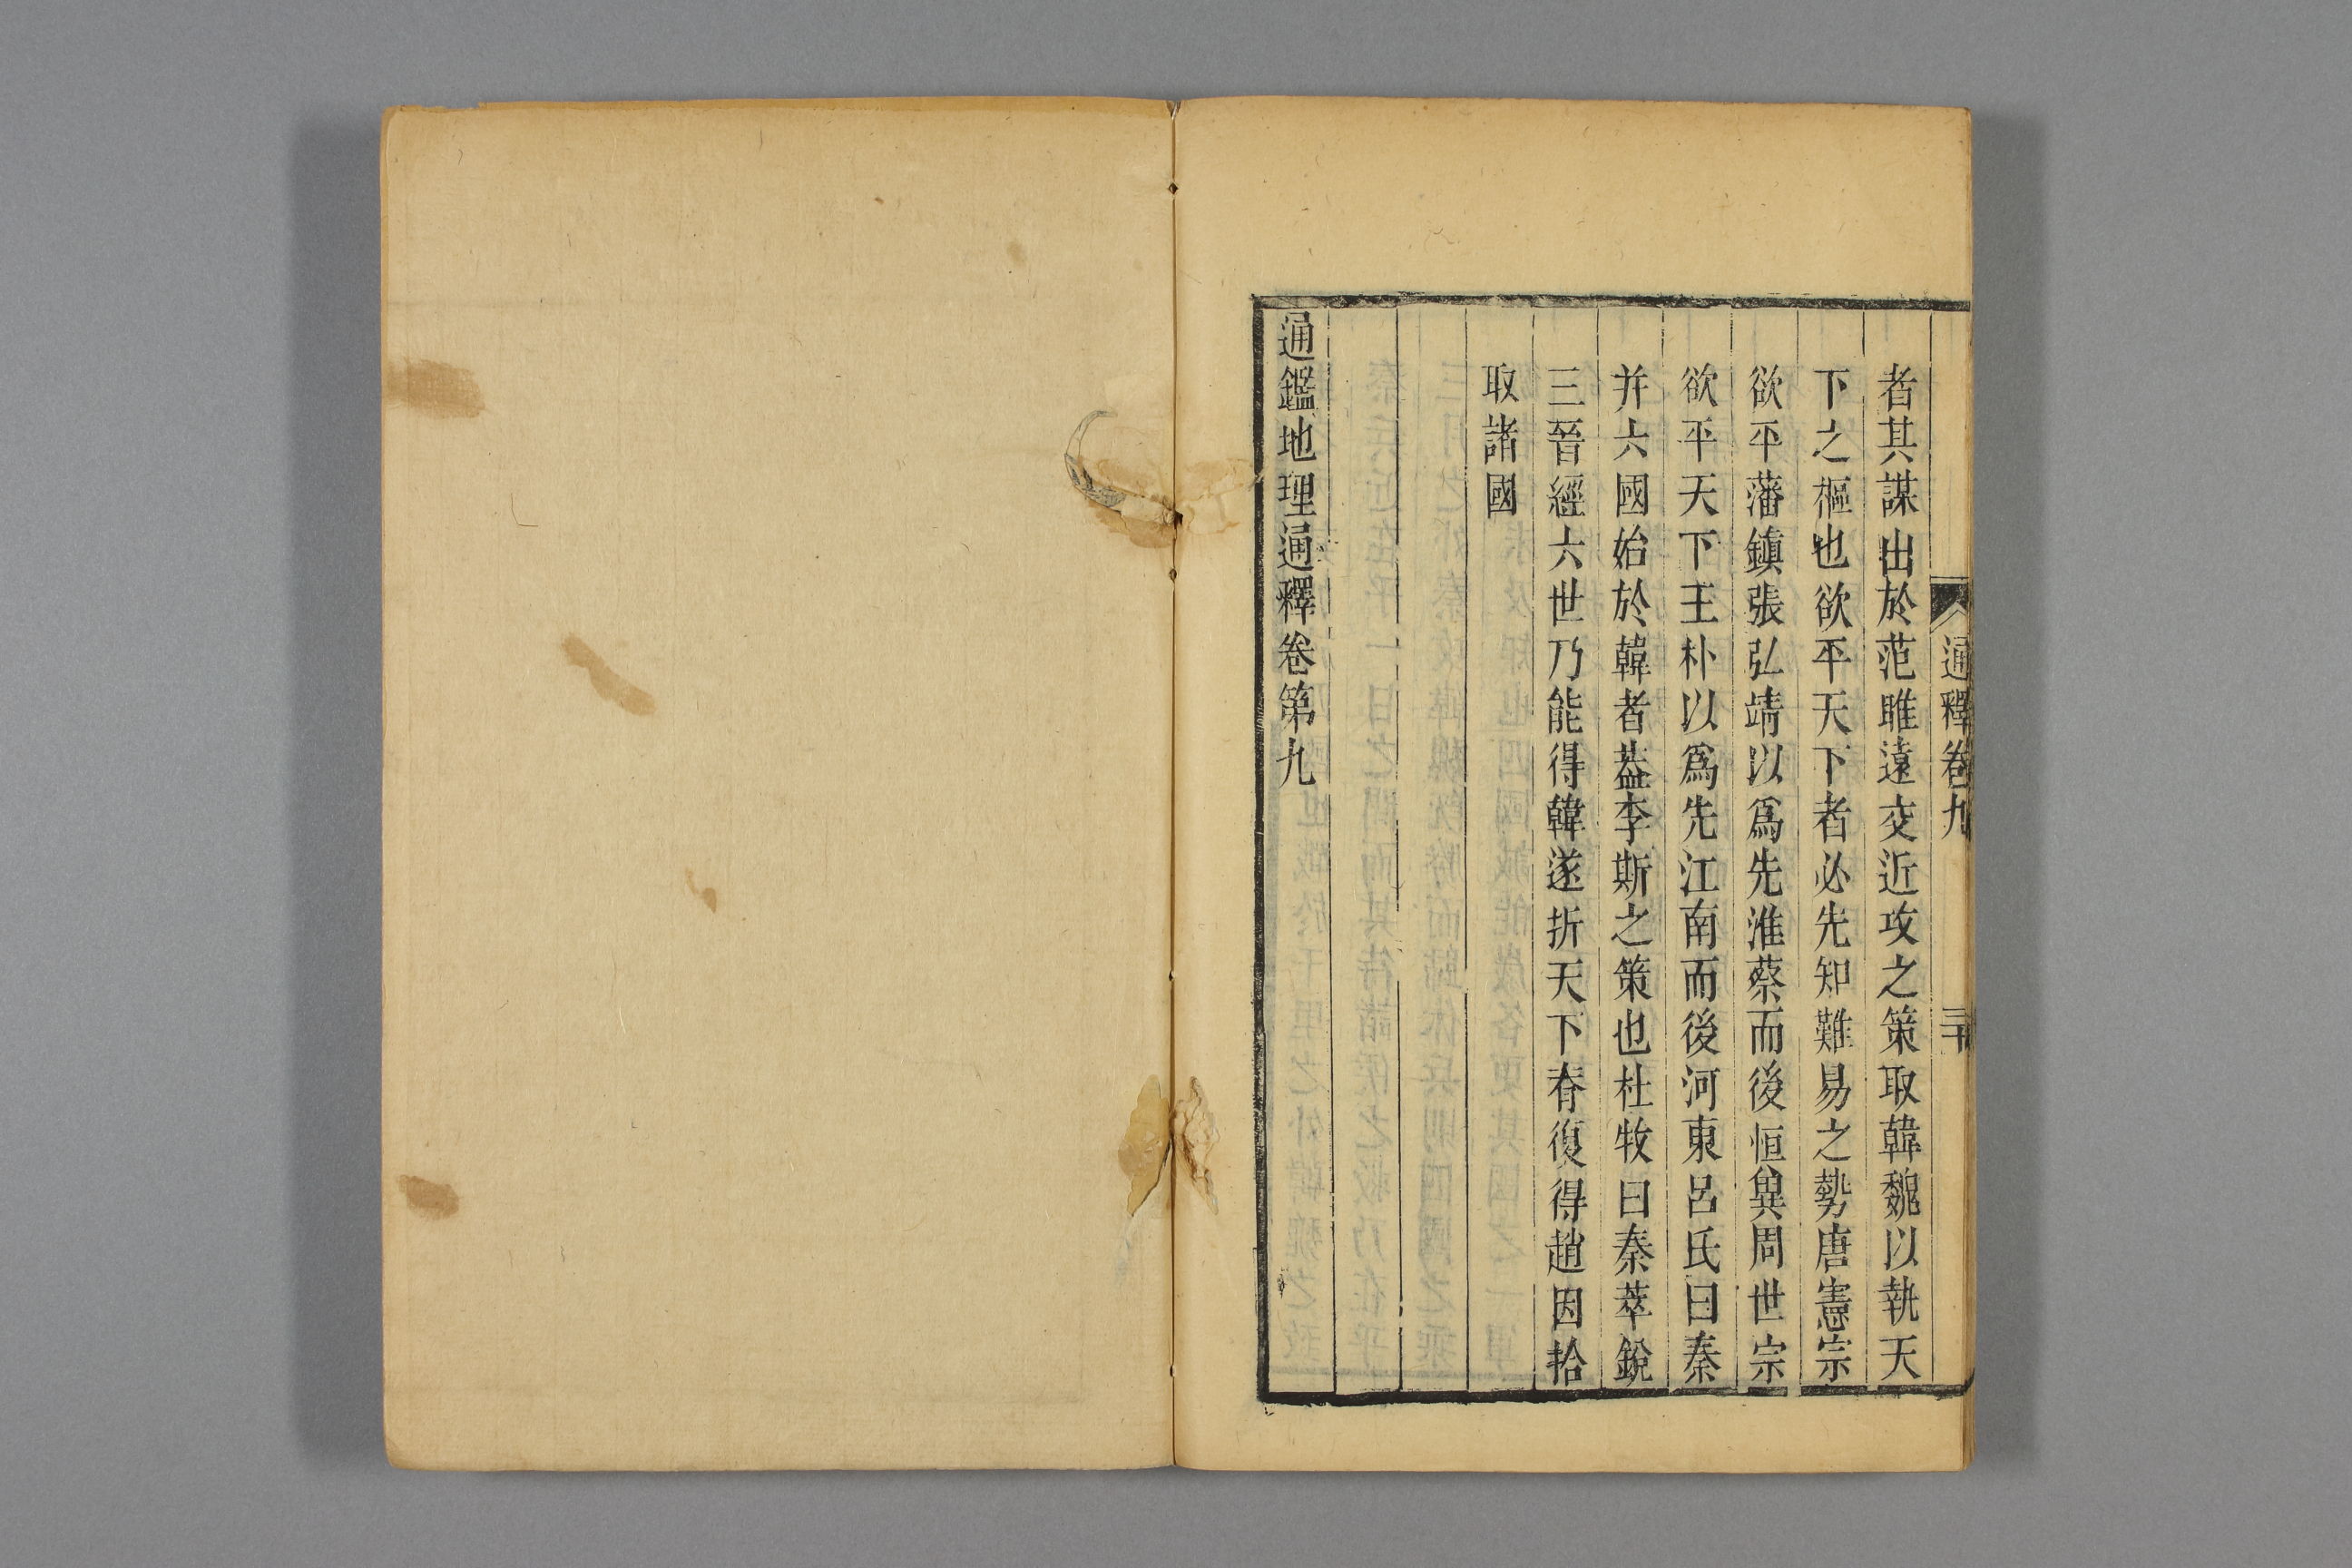 通釋卷九 三十
者其謀出於范雎遠交近攻之策取韓魏以執天
下之樞也欲平天下者必先知難易之勢唐憲宗
欲平藩鎮張弘靖以爲先淮蔡而後恒兾周世宗
欲平天下王朴以爲先江南而後河東呂氏曰秦
并六國始於韓者葢李斯之策也杜牧曰秦萃銳
三晉經六世乃能得韓遂折天下脊復得趙因拾
取諸國
通鑑地理通釋卷第九